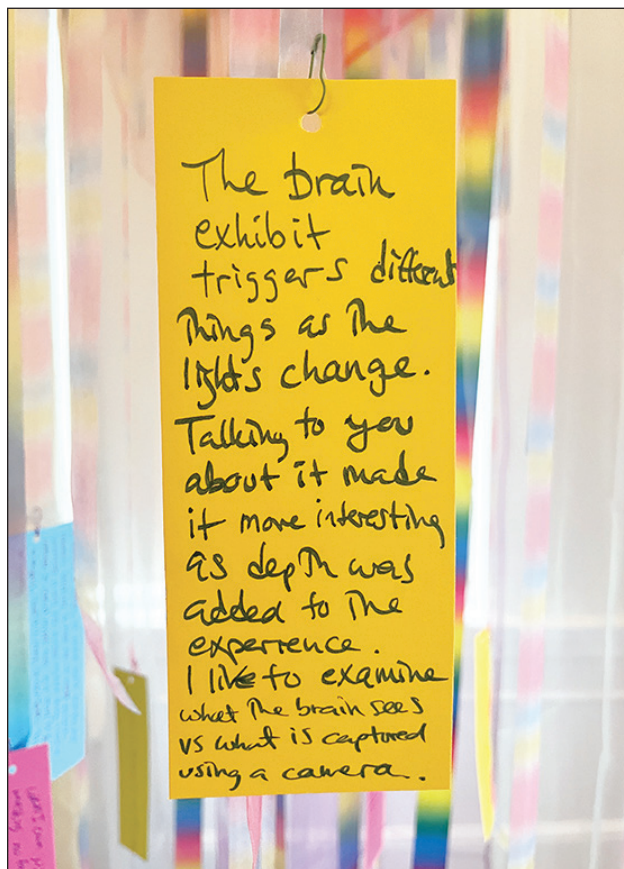 The brain
exhibit
triggers different
things as the
lights change.
Talking to you
about it made
it more interesting
as depth was
added to the
experience.
I like to examine
what the brain sees
vs what is captured
using a camera.